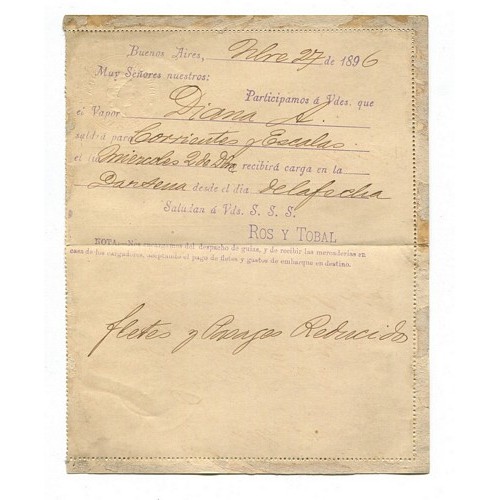 Buenos Aires, Nbre 27 de 1896
Muy Señores nuestros:
Participamos á Vdes. que
el Vapor Diana A.
saldrá para Corrientes y Escalas.
el Miércoles 2 de Dbre recibirá carga en la
Darsena desde el dia de la fecha
Saludan á Vds. S. S. S.
ROS Y TOBAL
NOTA. Nos encargamos del despacho de guias, y de recibir las mercaderias en
casa de los cargadores, aceptando el pago de fletes y gastos de embarque en destino.
fletes y Pasajes Reducido